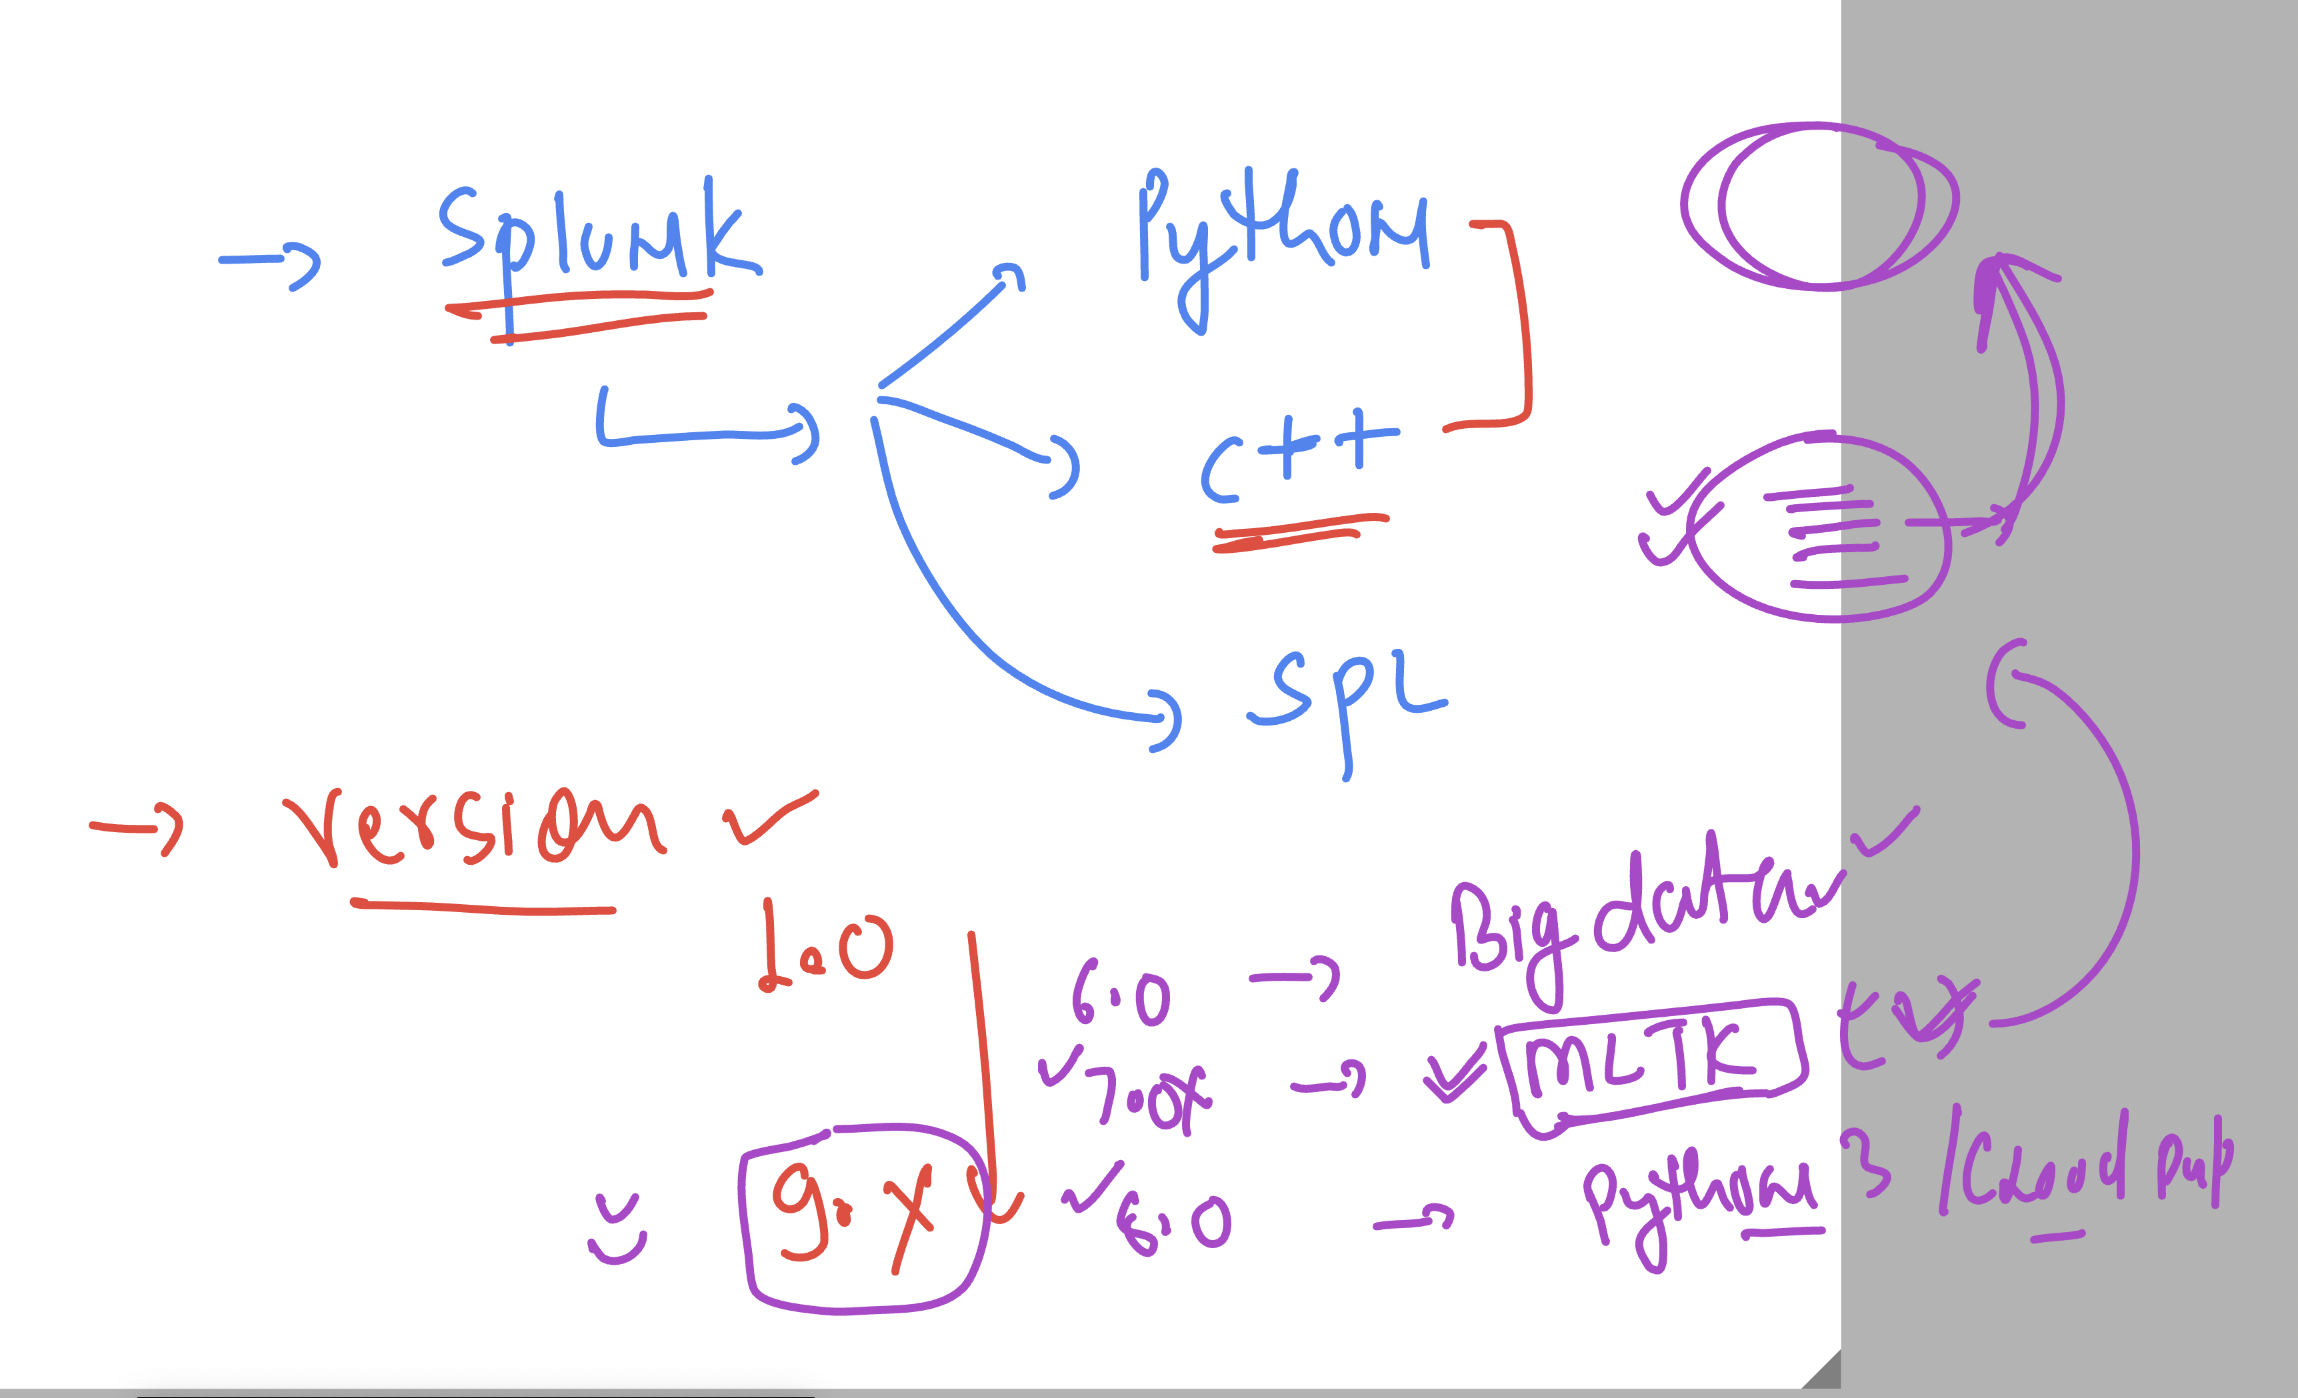 → Splunk
Python
C++
SPL
→ Version ✓
1.0
6.0 → Big data ✓
✓ 7.0x → ✓ MLTK
9.x
✓ 8.0 → Python 3 /